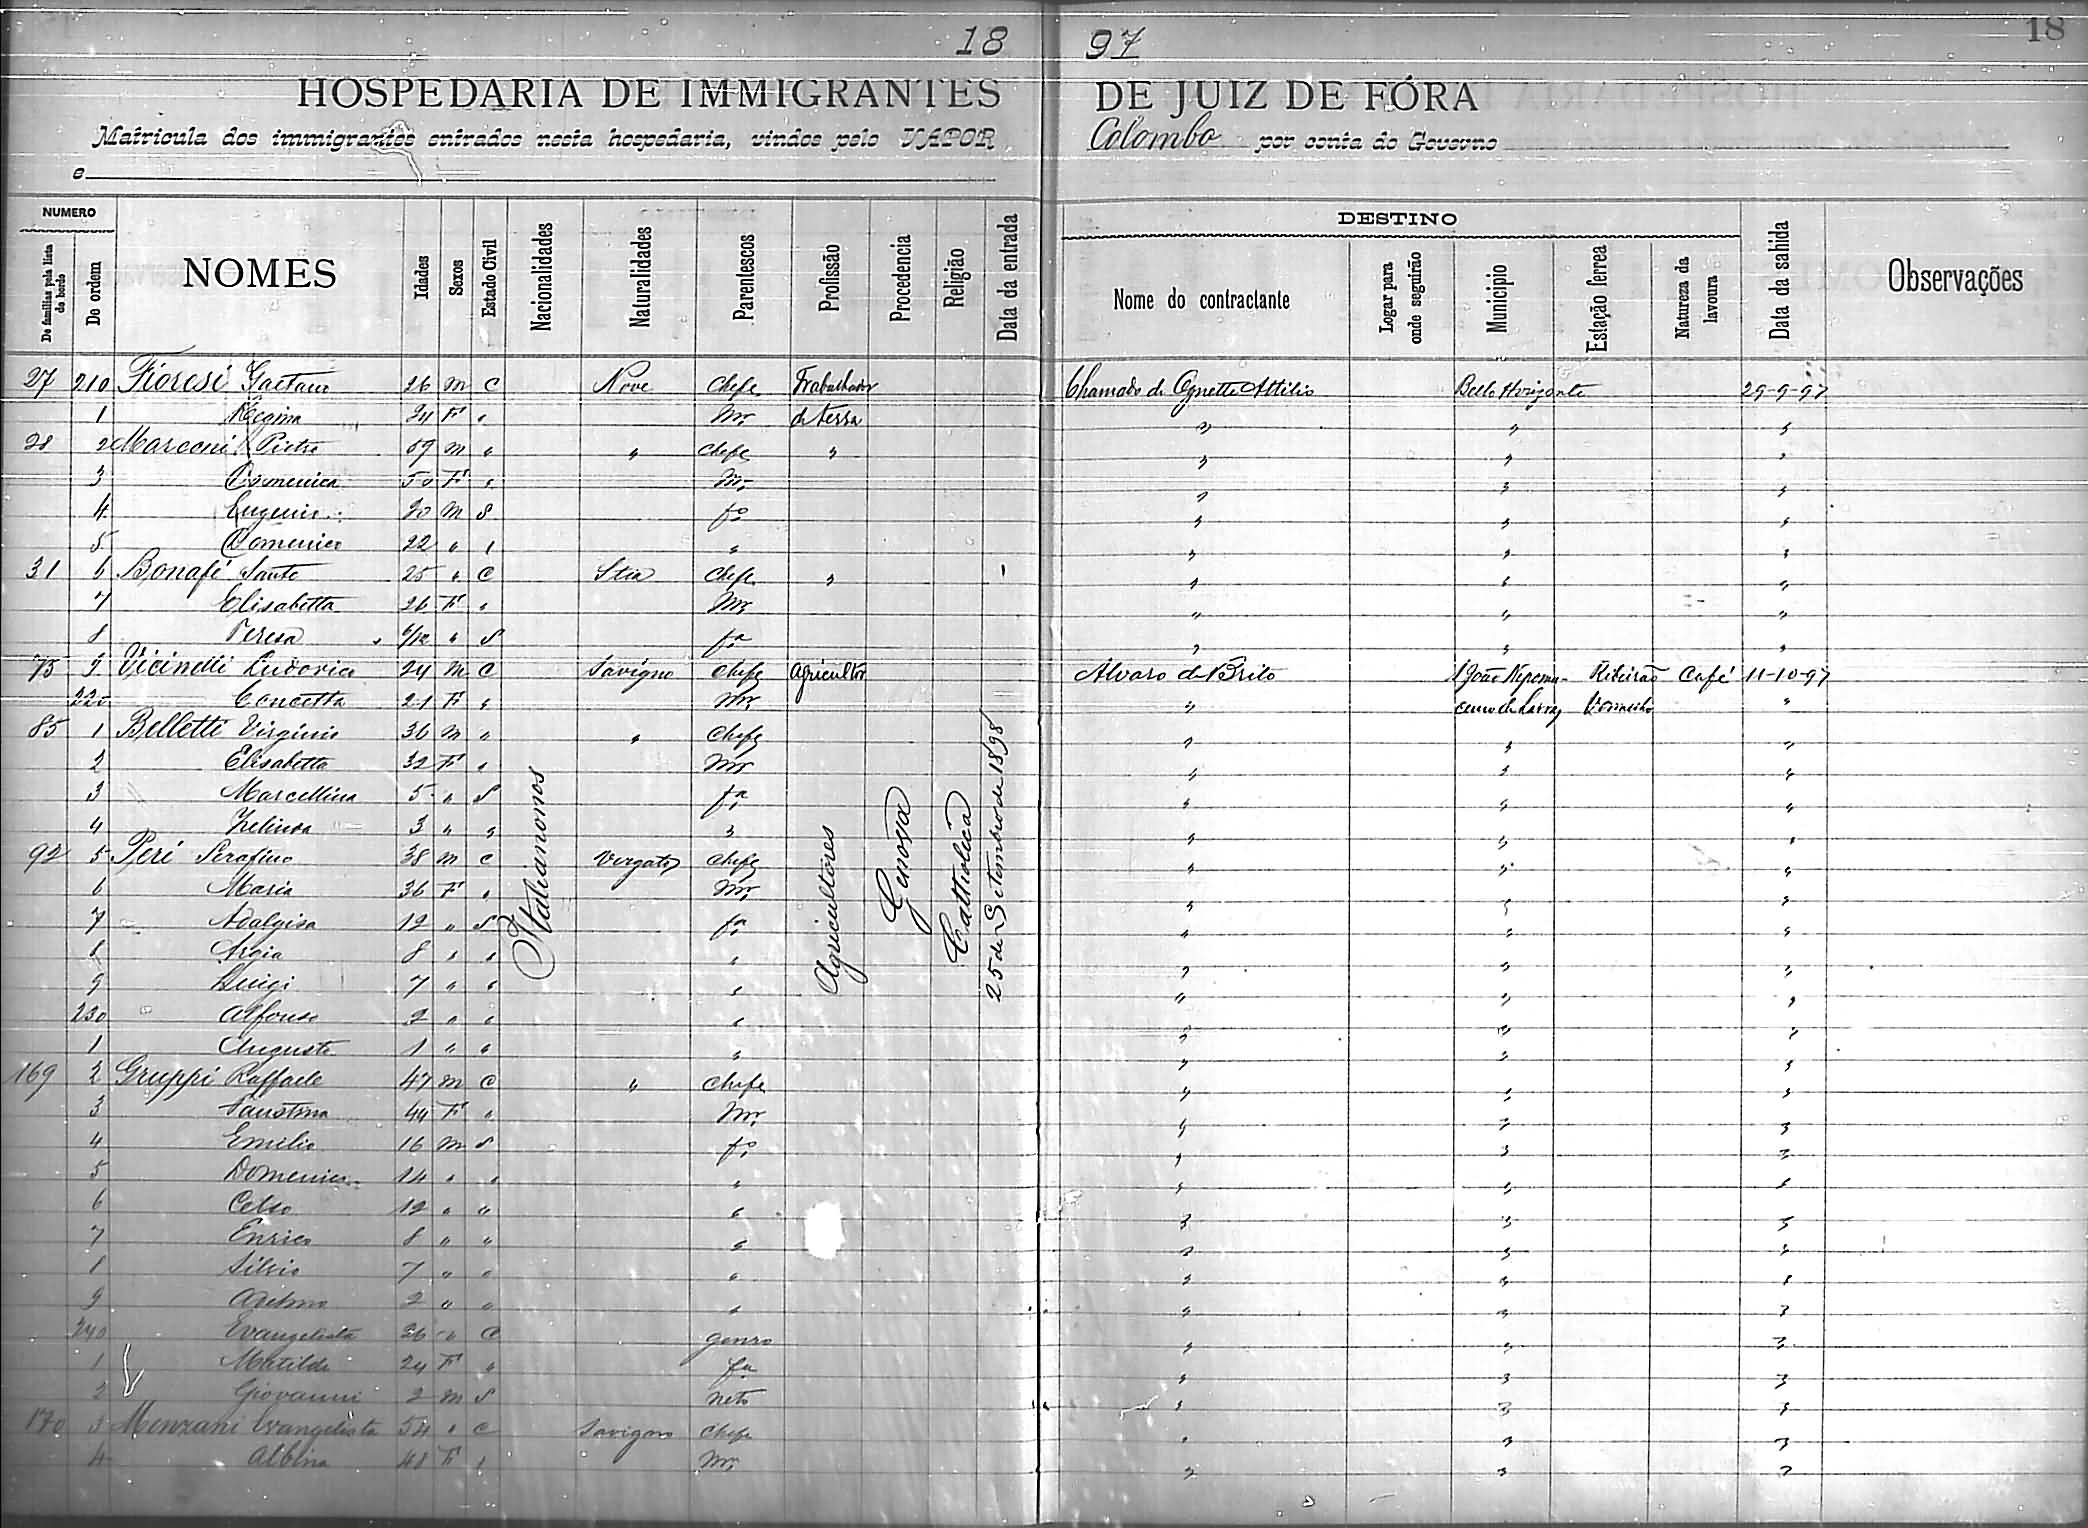 18 97 18
HOSPEDARIA DE IMMIGRANTES DE JUIZ DE FÓRA
Matricula dos immigrantes entrados nesta hospedaria, vindos pelo VAPOR Colombo por conta do Governo
e
NUMERO
De familias pela lista de bordo
De ordem
NOMES
Idades
Sexos
Estado Civil
Nacionalidades
Naturalidades
Parentescos
Profissão
Procedencia
Religião
Data da entrada
DESTINO
Nome do contractante
Logar para onde seguirão
Municipio
Estação ferrea
Natureza da lavoura
Data da sahida
Observações
27 210 Fioresi Gaetano 26 M C Nove Chefe Trabalhador Chamado de Ognette Attilio Bello Horizonte 29-9-97
1 Regina 24 F " Mr de terra " " "
28 2 Marconi Pietro 59 M " " Chefe " " " "
3 Domenica 50 F " Mr " " "
4 Eugenio 20 M S fo " " "
5 Domenico 22 " " " " " "
31 6 Bonafé Sante 25 " C Stia Chefe " " " "
7 Elisabetta 26 F " Mr " " "
8 Teresa 6/12 " S fa " " "
75 9 Vicinelli Ludovico 24 M C Savigno Chefe Agricultor Alvaro de Brito S João Nepomu- Ribeirão Café 11-10-97
220 Concetta 21 F " Mr " ceno de Lavras Vermelho "
85 1 Belletti Virginio 36 M " " Chefe " " "
2 Elisabetta 32 F " Mr " " "
3 Marcellina 5 " S fa " " "
4 Zelinda 3 " " " " " "
92 5 Peri Serafino 38 M C Vergato Chefe " " "
6 Maria 36 F " Mr " " "
7 Adalgisa 12 " S fa " " "
8 Argia 8 " " " " " "
9 Luigi 7 " " " " " "
230 Alfonso 2 " " " " " "
1 Augusto 1 " " " " " "
169 2 Gruppi Raffaele 47 M C " Chefe " " "
3 Faustina 44 F " Mr " " "
4 Emilio 16 M S fo " " "
5 Domenico 14 " " " " " "
6 Celso 12 " " " " " "
7 Enrico 8 " " " " " "
8 Silvio 7 " " " " " "
9 Adelmo 2 " " " " " "
240 Evangelista 26 " C genro " " "
1 Matilde 24 F " fa " " "
2 Giovanni 2 M S neto " " "
170 3 Menzani Evangelista 54 " C Savigno Chefe " " "
4 Albina 48 F " Mr " " "
Italianos
Agricultores
Genova
Catholica
25 de Setembro de 1898